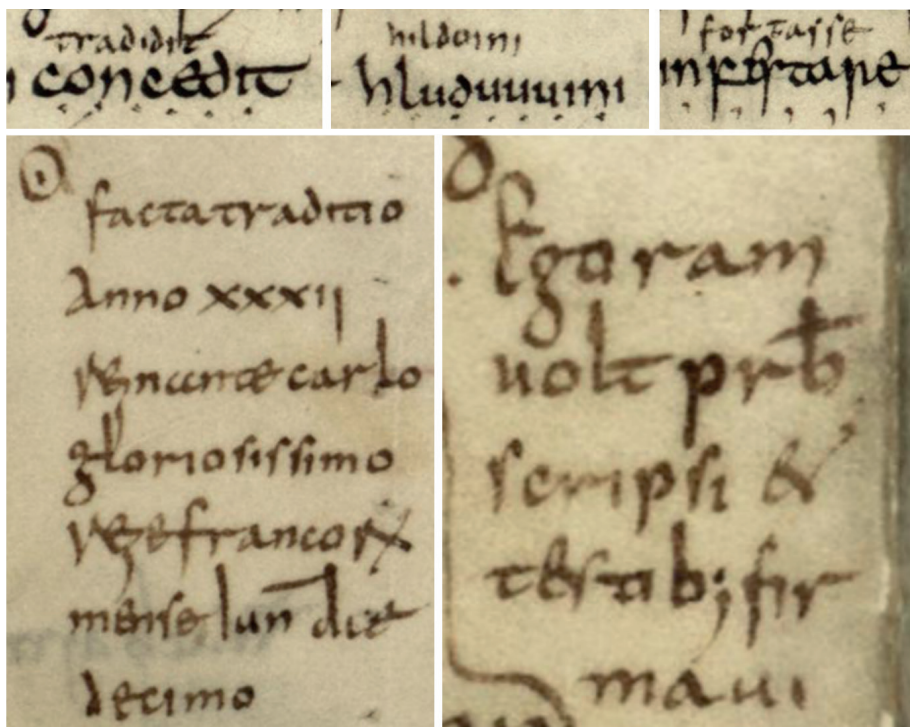 tradidit
concedit
hildoini
hluduuuini
fortasse
facta traditio
Anno xxxii
regnante carlo
gloriosissimo
rege francorū
mense iun̄ die
decimo
Ego ram
uolt prƀ
scripsi &
testib; fir
maui